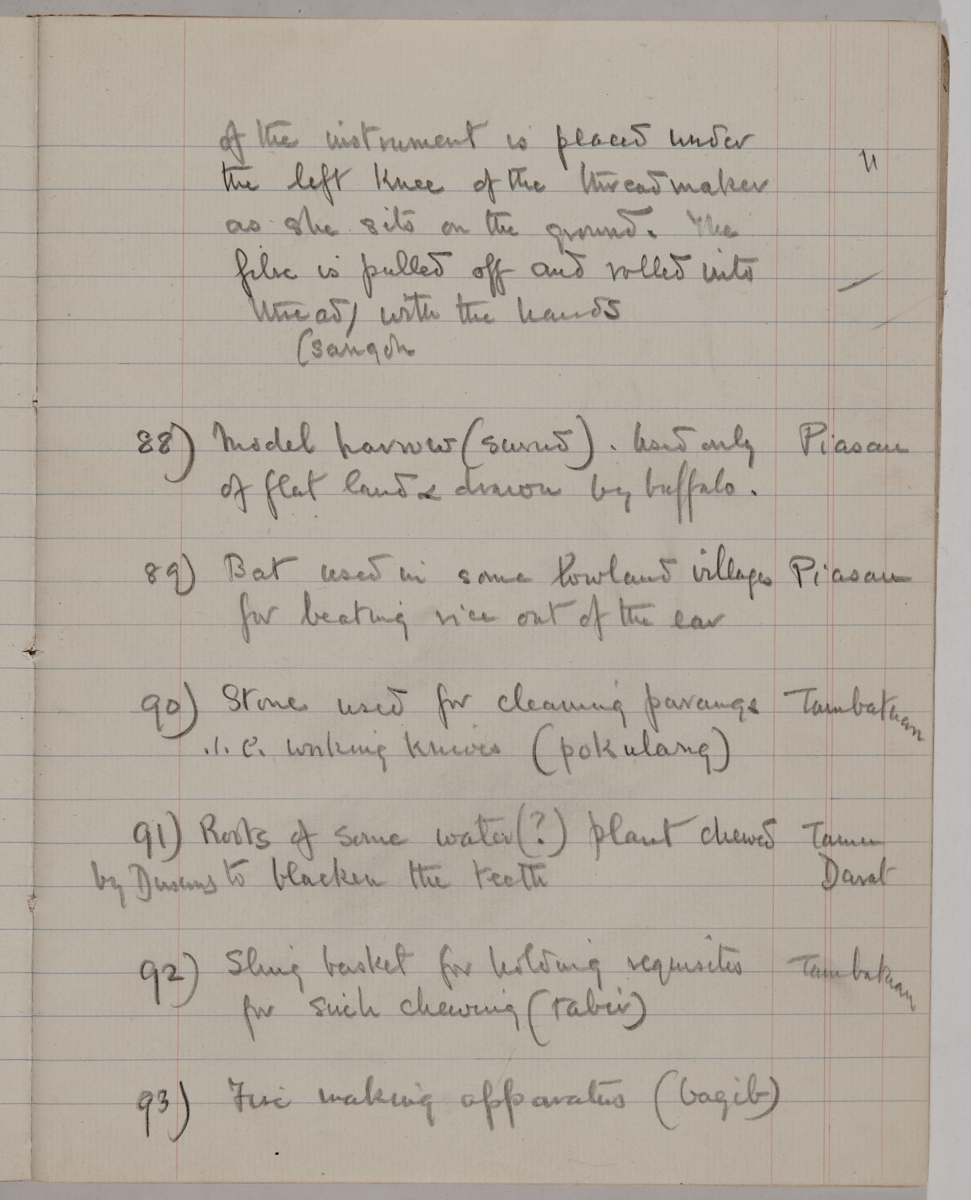 of the instrument is placed under
the left knee of the threadmaker
as she sits on the ground. The
fibre is pulled off and rolled into
thread, with the hands
(sangoh
88) Model harrow (surud). Used only Piasau
of flat land & drawn by buffalo.
89) Bat used in some lowland villages Piasau
for beating rice out of the ear
90) Stone used for cleaning parangs Tambatuan
i.e. working knives (pokulang)
91) Roots of some water(?) plant chewed Tamu
by Dusuns to blacken the teeth Darat
92) Slung basket for holding requisites Tambatuan
for such chewing (tabir)
93) Fire making apparatus (bagib)